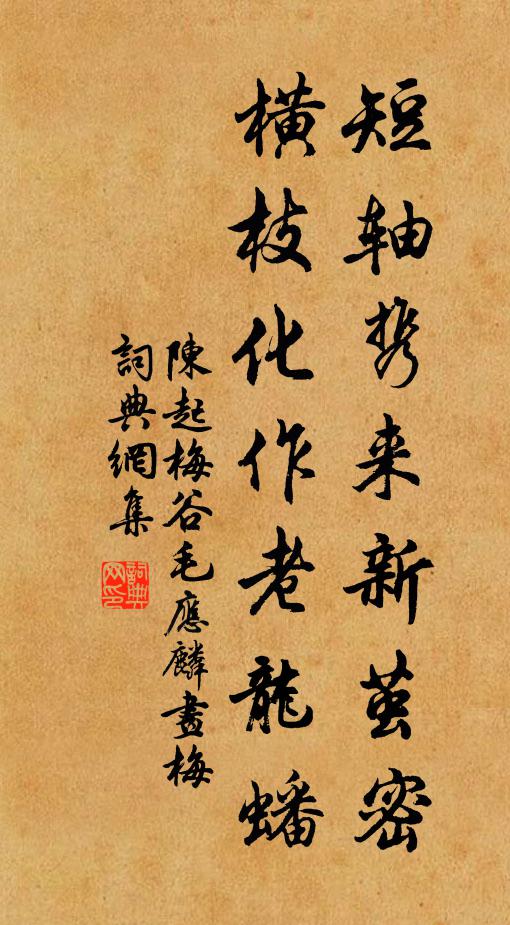 短轴携来新茧密
横枝化作老龍蟠
陳起梅谷毛應麟畫梅
詞典網集
詞典网印